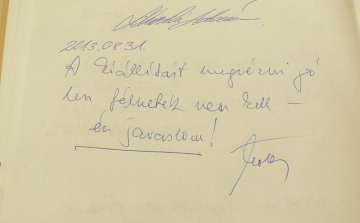 2013.08.31.
A kiállítást megnézni jó
len félnetek nem kell –
én javaslom!